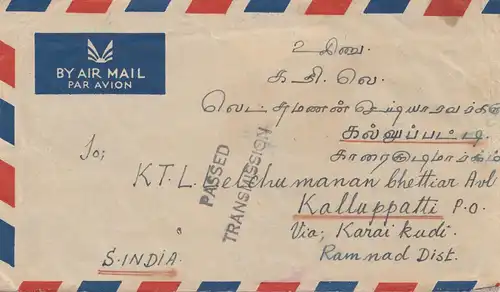 BY AIR MAIL
PAR AVION
உ சிவை.
க தி. லெ.
லெட்சுமணன் செட்டியாரவர்கள்
கல்லுப்பட்டி
காரைகுடிமார்கம்
To;
PASSED
TRANSMISSION
KT. L. Letchumanan Chettiar Avl
Kalluppatti P.O.
Via; Karaikudi.
Ramnad Dist.
S. INDIA